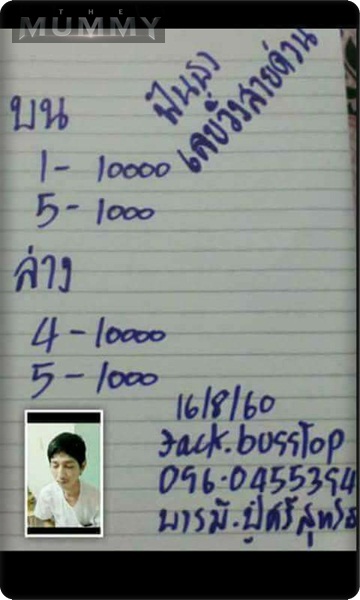 THE
MUMMY
ฟันธง
เลขวิ่งสายด่วน
บน
1 - 10000
5 - 1000
ล่าง
4 - 10000
5 - 1000
16/8/60
Jack.bussTop
096-0455394
บารมี.ปู่ศรีสุทโธ